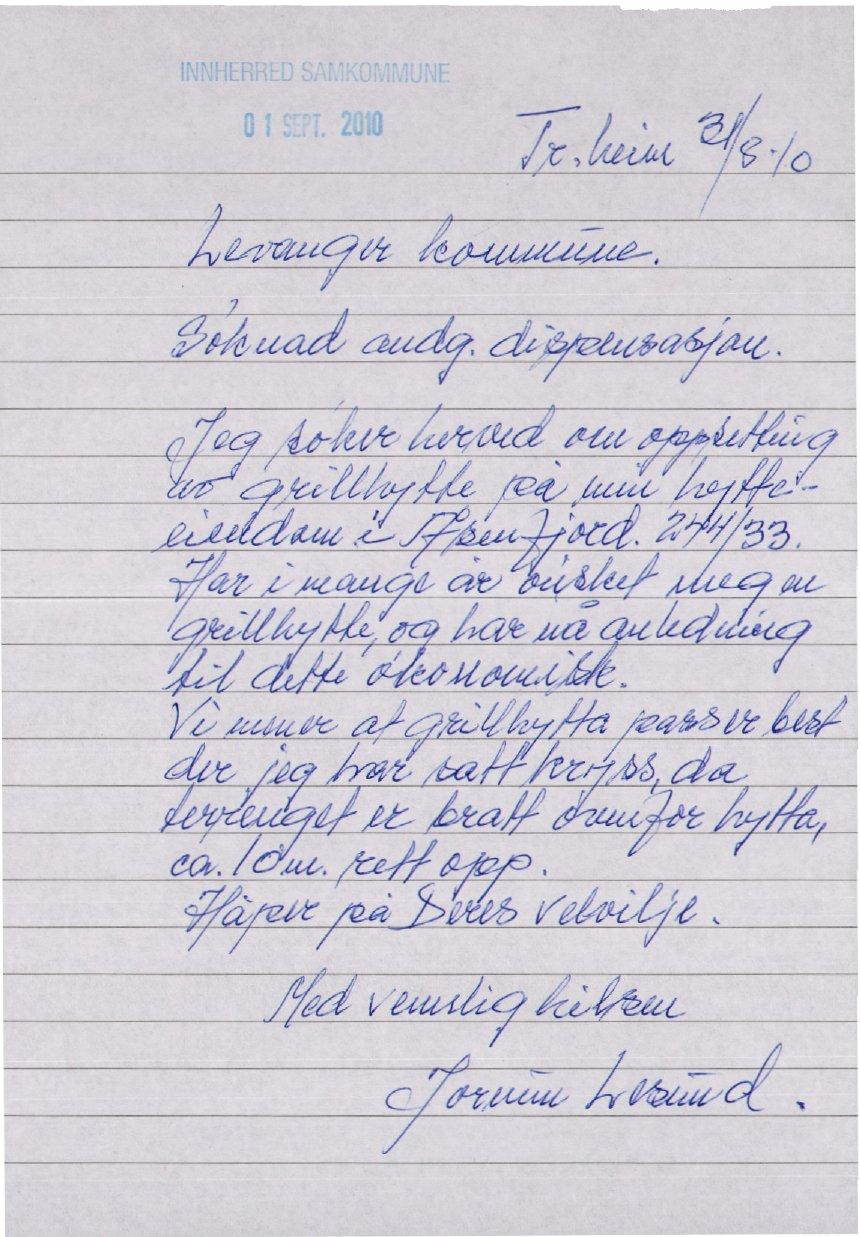 INNHERRED SAMKOMMUNE
01 SEPT. 2010
Tr.heim 31/8-10
Levanger kommune.
Söknad andg. dispensasjon.
Jeg söker herved om oppsetting
av grillhytte på min hytte-
eiendom i Åsenfjord. 244/33.
Har i mange år önsket meg en
grillhytte, og har nå anledning
til dette ökonomisk.
Vi mener at grillhytta passer best
der jeg har satt kryss, da
terrenget er bratt ovenfor hytta,
ca. 10m. rett opp.
Håper på Deres velvilje.
Med vennlig hilsen
Jorunn